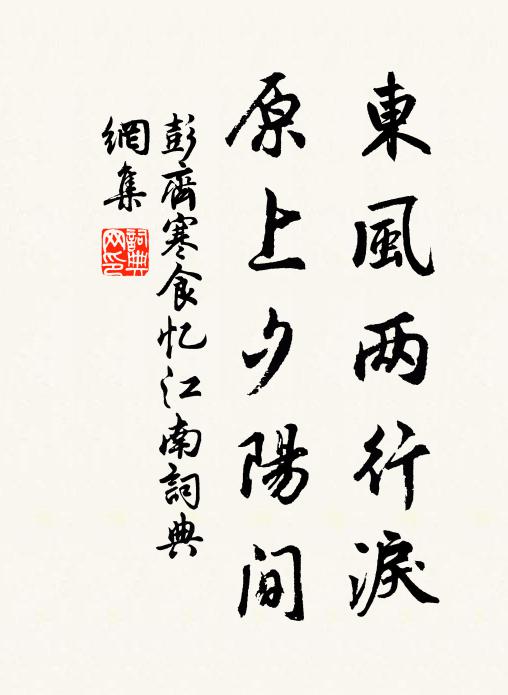 東風两行淚
原上夕陽間
彭齊寒食忆江南詞典
網集
詞典
网印